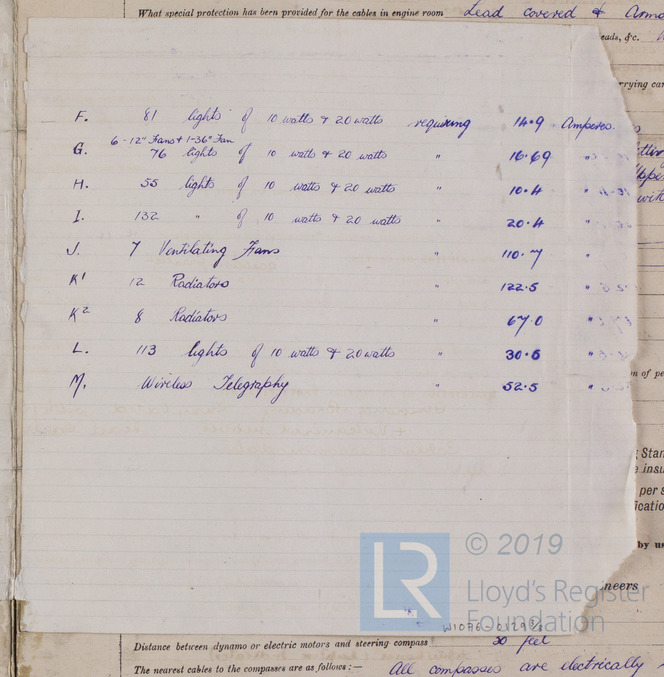 What special protection has been provided for the cables in engine room Lead covered &
eads, &c.
rrying
F. 81 lights of 10 watts & 20 watts requiring 14.9 Amperes.
6-12" Fans & 1-36" Fan
G. 76 lights of 10 watts & 20 watts " 16.69 "
H. 55 lights of 10 watts & 20 watts " 10.4 "
I. 132 " of 10 watts & 20 watts " 20.4 "
J. 7 Ventilating Fans " 110.7 "
K¹ 12 Radiators " 122.5 "
K² 8 Radiators " 67.0 "
L. 113 lights of 10 watts & 20 watts " 30.6 "
n of pe
M. Wireless Telegraphy " 52.5 "
Stan
e insu
per s
ficatio
by us
© 2019
LR
Lloyd's Register
Foundation
neers
Distance between dynamo or electric motors and steering compass 30 feet
The nearest cables to the compasses are as follows:— All compasses are electrically